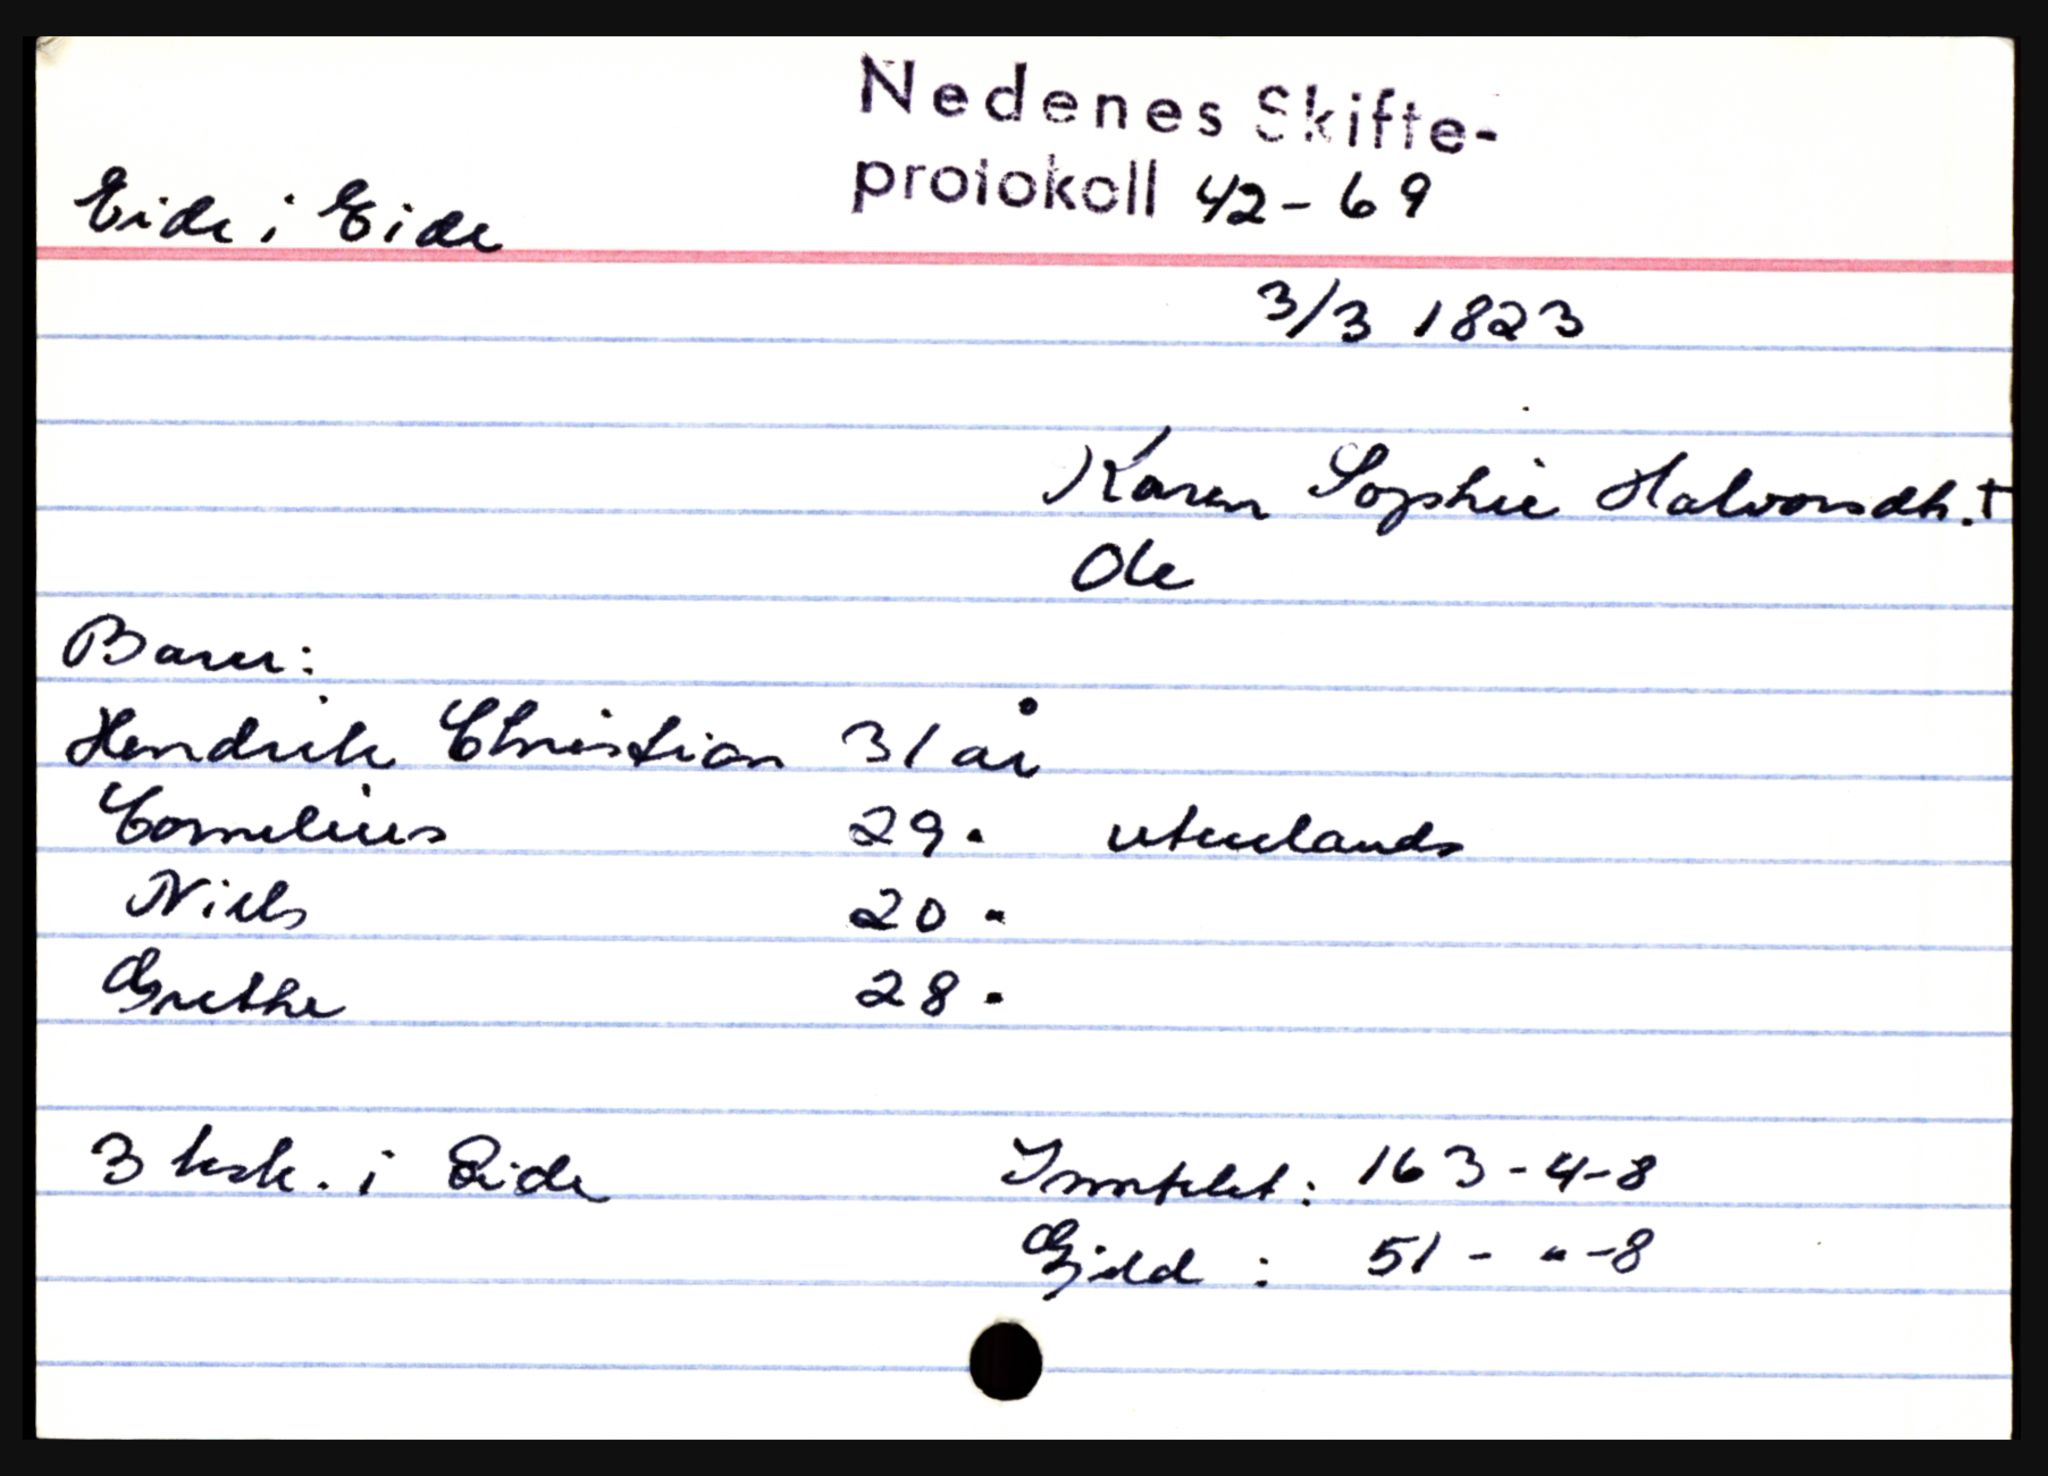 Nedenes Skifte-
protokoll 42-69
Eide i Eide
3/3 1823
Karen Sophie Halvorsdh. †
Ole
Barn:
Hendrik Christian 31 år
Cornelius 29 " utenlands
Niels 20 "
Grethe 28 "
3 hsk. i Eide
Inntekt: 163-4-8
Gjeld: 51 - " -8